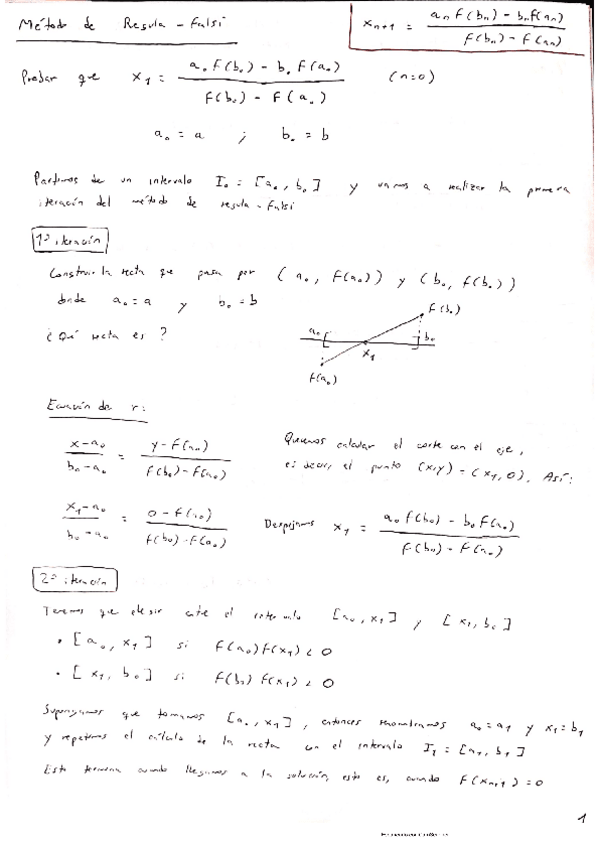 Método de Regula-Falsi
x_{n+1} = (a_n f(b_n) - b_n f(a_n)) / (f(b_n) - f(a_n))
Probar que x_1 = (a_0 f(b_0) - b_0 f(a_0)) / (f(b_0) - f(a_0)) (n=0)
a_0 = a ; b_0 = b
Partimos de un intervalo I_0 = [a_0, b_0] y vamos a realizar la primera
iteración del método de regula-falsi
1ª iteración
Construir la recta que pasa por (a_0, f(a_0)) y (b_0, f(b_0))
donde a_0 = a y b_0 = b
¿Qué recta es?
f(b_0)
a_0
b_0
x_1
f(a_0)
Ecuación de r:
(x-a_0)/(b_0-a_0) = (y-f(a_0))/(f(b_0)-f(a_0))
Queremos calcular el corte con el eje,
es decir, el punto (x,y) = (x_1, 0). Así:
(x_1-a_0)/(b_0-a_0) = (0-f(a_0))/(f(b_0)-f(a_0)) Despejamos x_1 = (a_0 f(b_0) - b_0 f(a_0)) / (f(b_0) - f(a_0))
2ª iteración
Tenemos que elegir entre el intervalo [a_0, x_1] y [x_1, b_0]
• [a_0, x_1] si f(a_0)f(x_1) < 0
• [x_1, b_0] si f(b_0) f(x_1) < 0
Supongamos que tomamos [a_0, x_1], entonces renombramos a_0 = a_1 y x_1 = b_1
y repetimos el cálculo de la recta con el intervalo I_1 = [a_1, b_1]
Esto termina cuando llegamos a la solución, esto es, cuando f(x_{n+1}) = 0
1